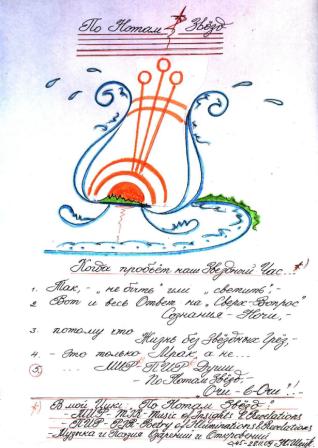 По Нотам Звёзд
Когда пробьёт наш Звёздный Час...*)
1. Так, - "не быть" или "светить", -
2. Вот и весь Ответ на "Сверх-Вопрос"
Сознания - Ночи, -
3. потому что
Жизнь без Звёздных Грёз, -
4. - Это только Мрак, а не...
5. ... МИР - ПИР Души,
- По Нотам Звёзд,
"Очи - в - Очи"!
*) В мой Цикл "По Нотам Звёзд"
МИР - MIR - Music of Insights & Revelations
ПИР - PIR - Poetry of Illuminations & Revelations
Музыка и Поэзия Озарений и Откровений